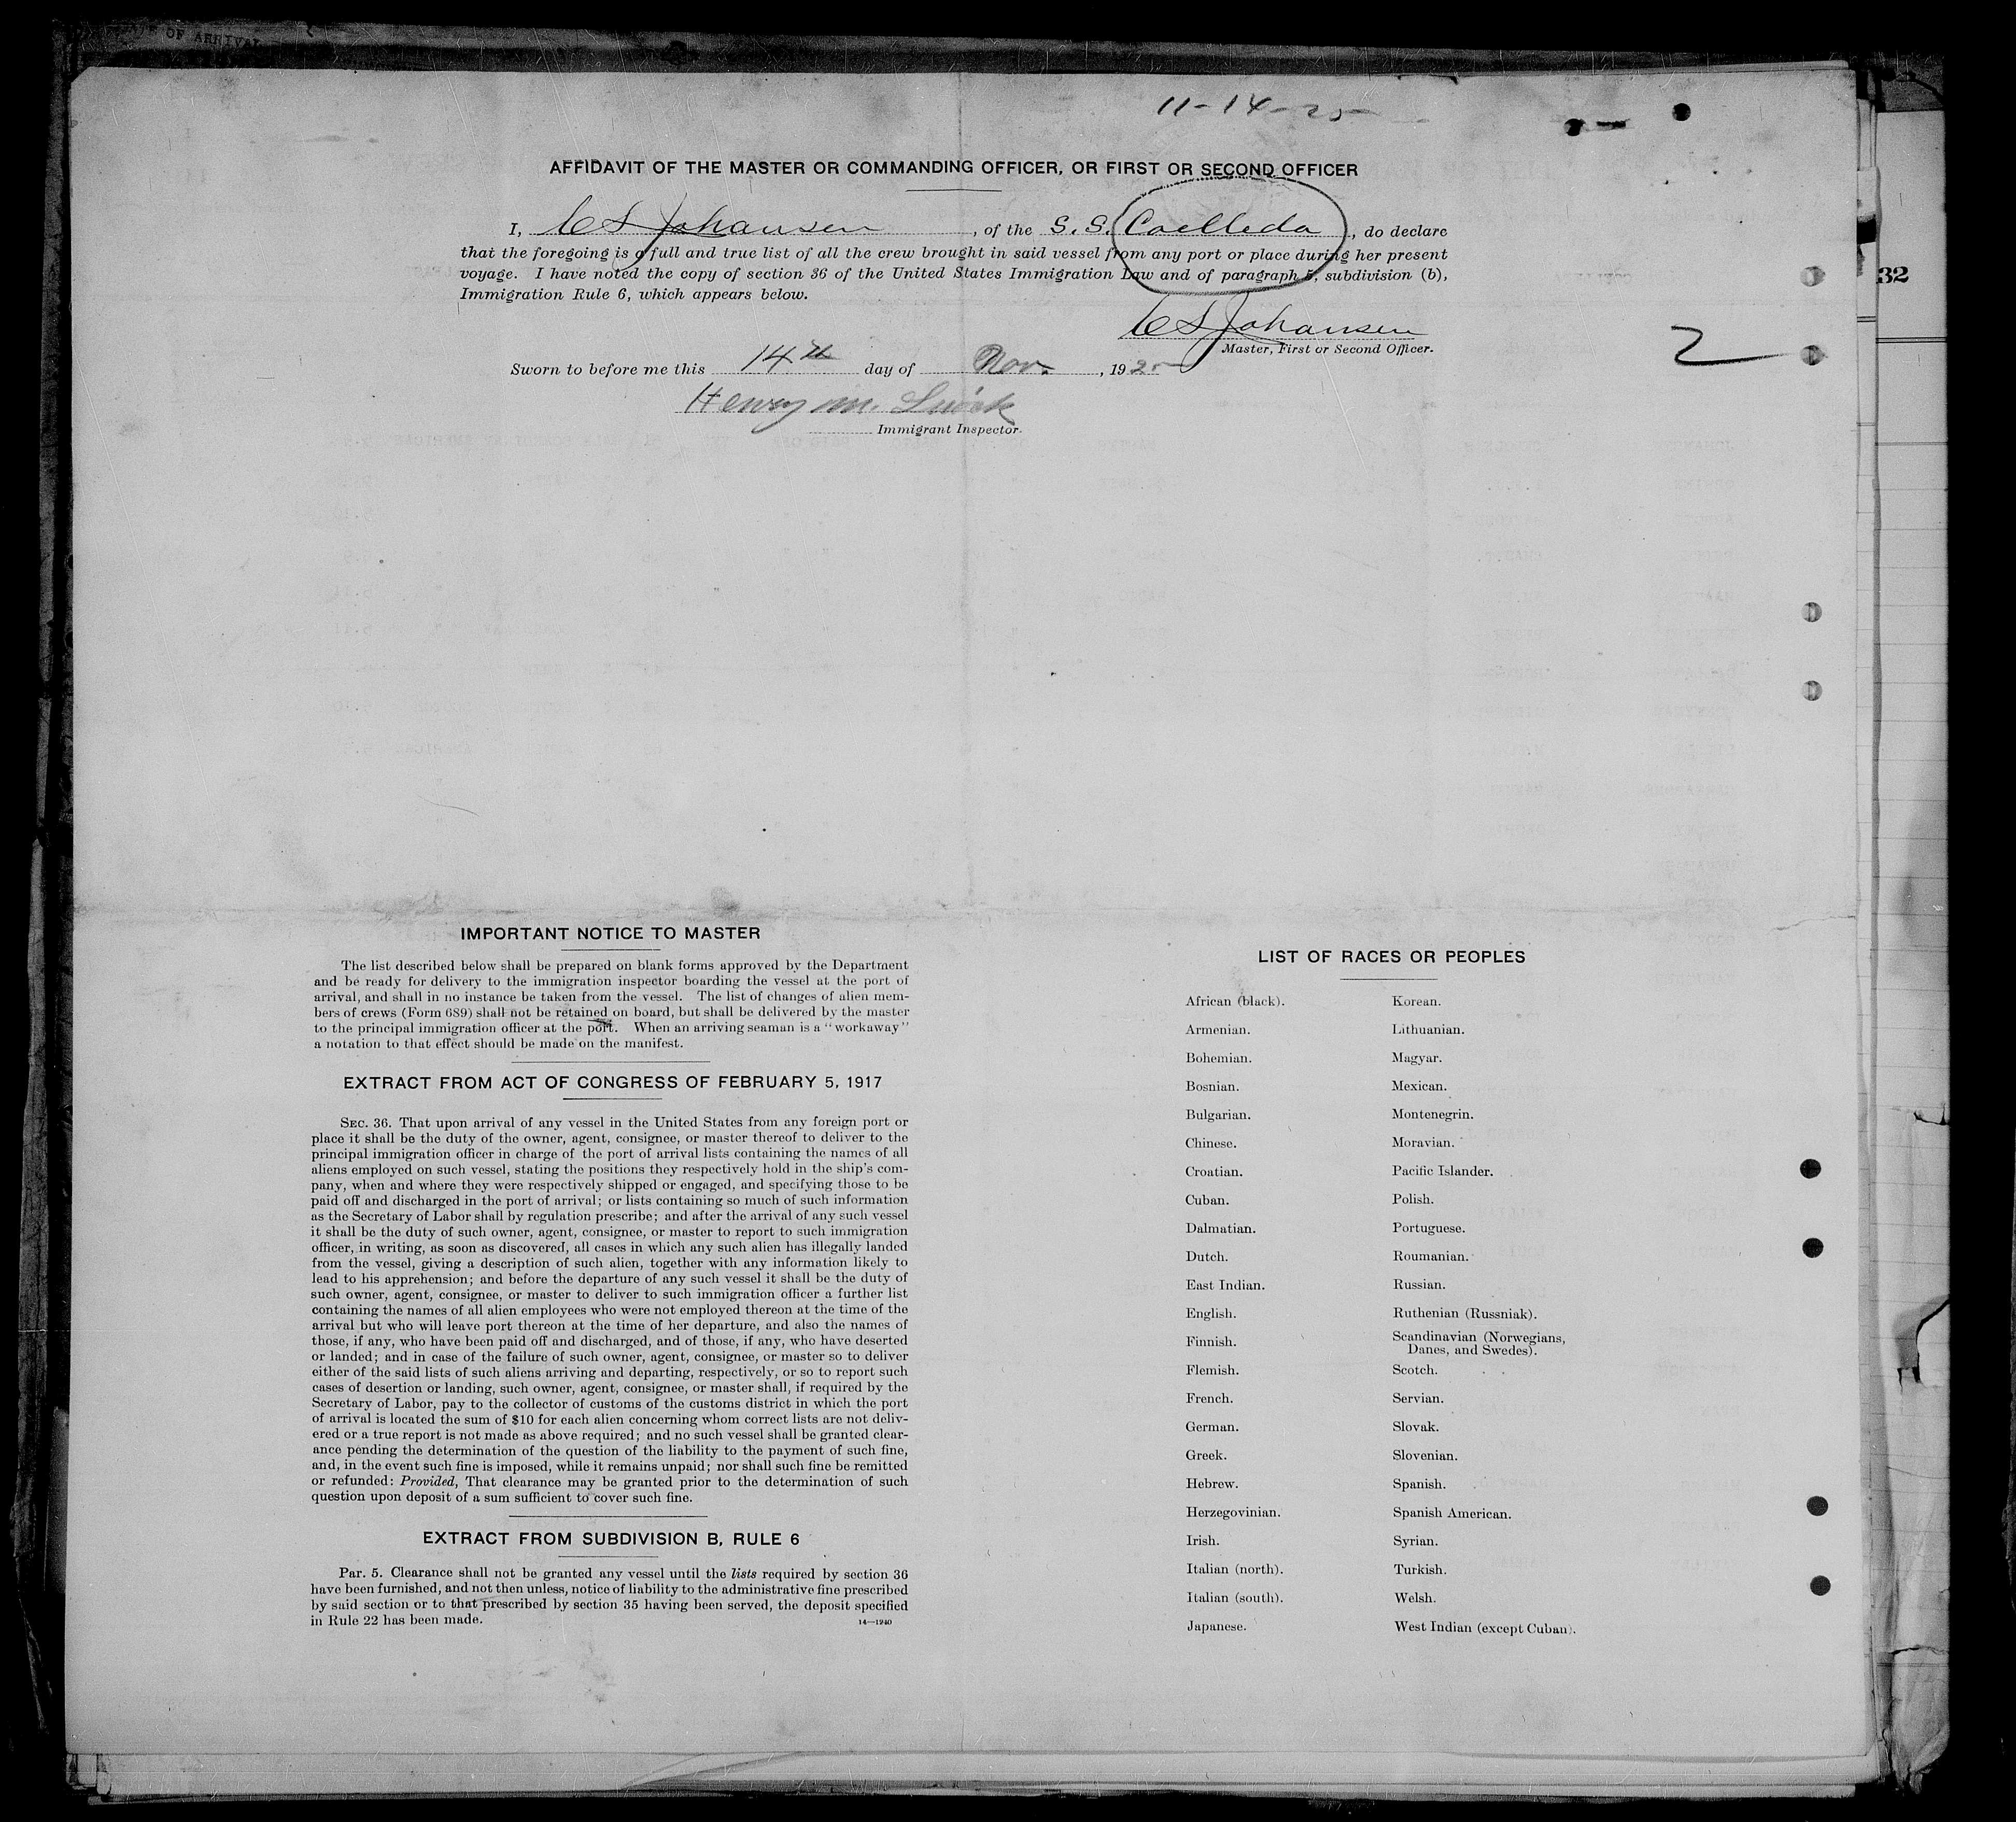 OF ARRIVAL
11-14-25
AFFIDAVIT OF THE MASTER OR COMMANDING OFFICER, OR FIRST OR SECOND OFFICER
I, C S Johansen, of the S. S. Coelleda, do declare
that the foregoing is a full and true list of all the crew brought in said vessel from any port or place during her present
voyage. I have noted the copy of section 36 of the United States Immigration Law and of paragraph 5, subdivision (b),
Immigration Rule 6, which appears below.
C S Johansen
Master, First or Second Officer.
32
2
Sworn to before me this 14th day of Nov., 1925
Henry M.
Immigrant Inspector.
IMPORTANT NOTICE TO MASTER
The list described below shall be prepared on blank forms approved by the Department
and be ready for delivery to the immigration inspector boarding the vessel at the port of
arrival, and shall in no instance be taken from the vessel. The list of changes of alien mem-
bers of crews (Form 689) shall not be retained on board, but shall be delivered by the master
to the principal immigration officer at the port. When an arriving seaman is a "workaway"
a notation to that effect should be made on the manifest.
EXTRACT FROM ACT OF CONGRESS OF FEBRUARY 5, 1917
SEC. 36. That upon arrival of any vessel in the United States from any foreign port or
place it shall be the duty of the owner, agent, consignee, or master thereof to deliver to the
principal immigration officer in charge of the port of arrival lists containing the names of all
aliens employed on such vessel, stating the positions they respectively hold in the ship's com-
pany, when and where they were respectively shipped or engaged, and specifying those to be
paid off and discharged in the port of arrival; or lists containing so much of such information
as the Secretary of Labor shall by regulation prescribe; and after the arrival of any such vessel
it shall be the duty of such owner, agent, consignee, or master to report to such immigration
officer, in writing, as soon as discovered, all cases in which any such alien has illegally landed
from the vessel, giving a description of such alien, together with any information likely to
lead to his apprehension; and before the departure of any such vessel it shall be the duty of
such owner, agent, consignee, or master to deliver to such immigration officer a further list
containing the names of all alien employees who were not employed thereon at the time of the
arrival but who will leave port thereon at the time of her departure, and also the names of
those, if any, who have been paid off and discharged, and of those, if any, who have deserted
or landed; and in case of the failure of such owner, agent, consignee, or master so to deliver
either of the said lists of such aliens arriving and departing, respectively, or so to report such
cases of desertion or landing, such owner, agent, consignee, or master shall, if required by the
Secretary of Labor, pay to the collector of customs of the customs district in which the port
of arrival is located the sum of $10 for each alien concerning whom correct lists are not deliv-
ered or a true report is not made as above required; and no such vessel shall be granted clear-
ance pending the determination of the question of the liability to the payment of such fine,
and, in the event such fine is imposed, while it remains unpaid; nor shall such fine be remitted
or refunded: Provided, That clearance may be granted prior to the determination of such
question upon deposit of a sum sufficient to cover such fine.
EXTRACT FROM SUBDIVISION B, RULE 6
Par. 5. Clearance shall not be granted any vessel until the lists required by section 36
have been furnished, and not then unless, notice of liability to the administrative fine prescribed
by said section or to that prescribed by section 35 having been served, the deposit specified
in Rule 22 has been made.
14—1940
LIST OF RACES OR PEOPLES
African (black).
Armenian.
Bohemian.
Bosnian.
Bulgarian.
Chinese.
Croatian.
Cuban.
Dalmatian.
Dutch.
East Indian.
English.
Finnish.
Flemish.
French.
German.
Greek.
Hebrew.
Herzegovinian.
Irish.
Italian (north).
Italian (south).
Japanese.
Korean.
Lithuanian.
Magyar.
Mexican.
Montenegrin.
Moravian.
Pacific Islander.
Polish.
Portuguese.
Roumanian.
Russian.
Ruthenian (Russniak).
Scandinavian (Norwegians,
Danes, and Swedes).
Scotch.
Servian.
Slovak.
Slovenian.
Spanish.
Spanish American.
Syrian.
Turkish.
Welsh.
West Indian (except Cuban).